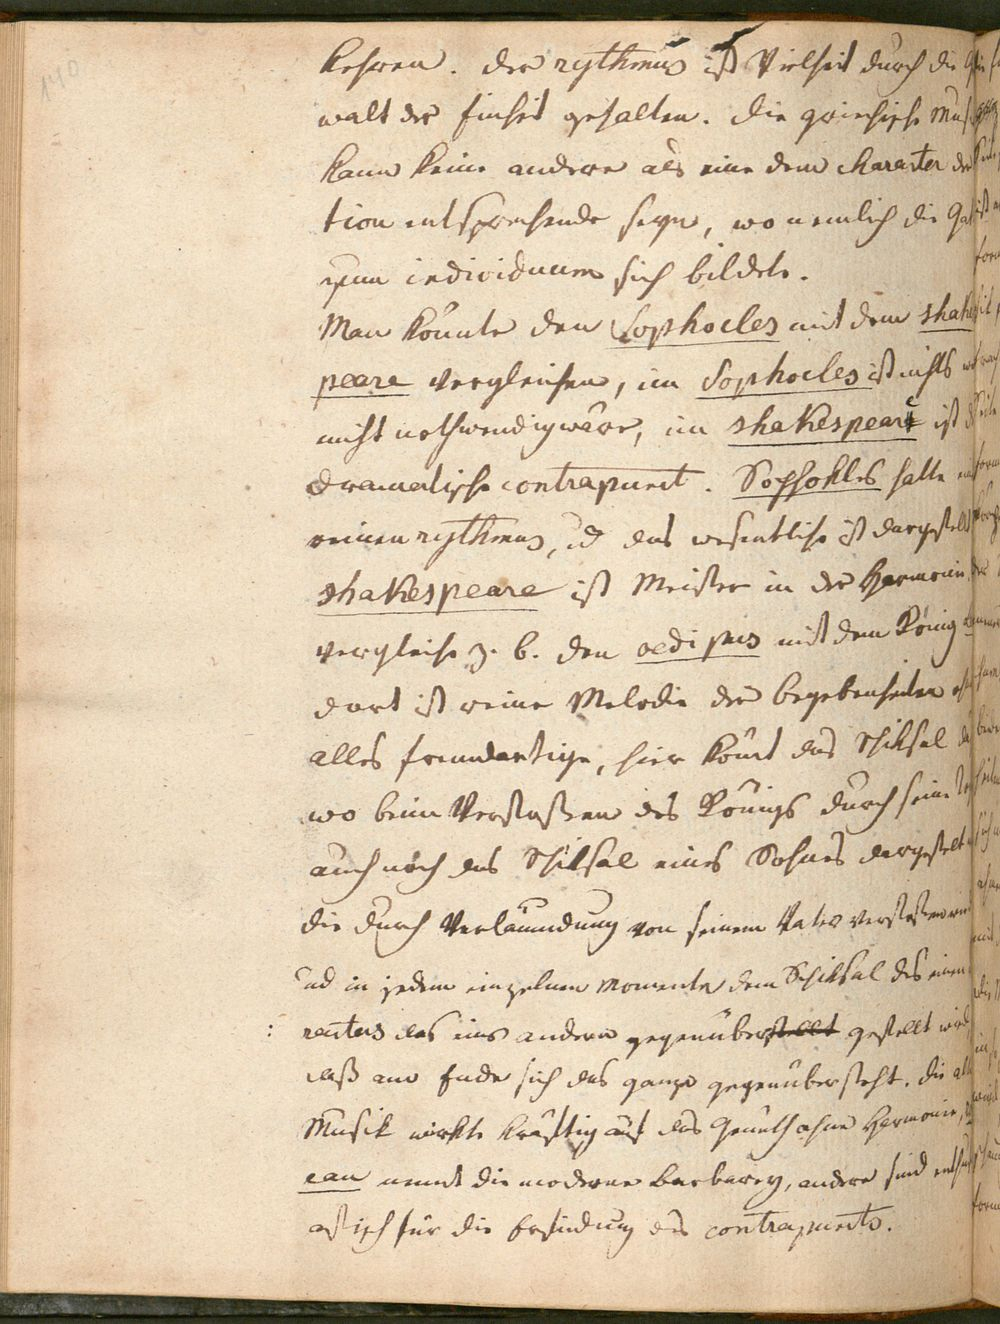 140
kehren. der rythmus ist Vielheit durch die Ge
walt der Einheit gehalten. die griechische Mus
kann keine andere als eine dem character der
tion entsprechende seyn, wo nemlich die Gat
zum individuum sich bildete.
Man könnte den Sophocles mit dem shakes
peare vergleichen, im Sophocles ist nichts was
nicht nothwendig wäre, im shakespeare ist d
dramatische contrapunct. Sophokles hatte ein
reinen rythmus, das wesentliche ist dargestellt
shakespeare ist Meister in der Harmonie
vergleiche z. b. den oedipus mit dem König
dort ist reine Melodie der begebenheiten ohne
alles fremdartige, hier kōmt das Schiksal
wo beim Verstoßen des Königs durch seine
auch noch das Schiksal eines Sohnes dargestelt
die durch Verläumdung von seinem Vater verstoßen wird
ud in jedem einzelnen Momente dem Schiksal des einen
das ins andern gegenüberstellt gestellt wird
daß am Ende sich das ganze gegenübersteht. die alte
Musik wirkte kräftig auf das Gemüth ohne Harmonie,
eau nennt die moderne barbarey, andere sind enthusi
astisch für die Erfindung des contrapuncts.